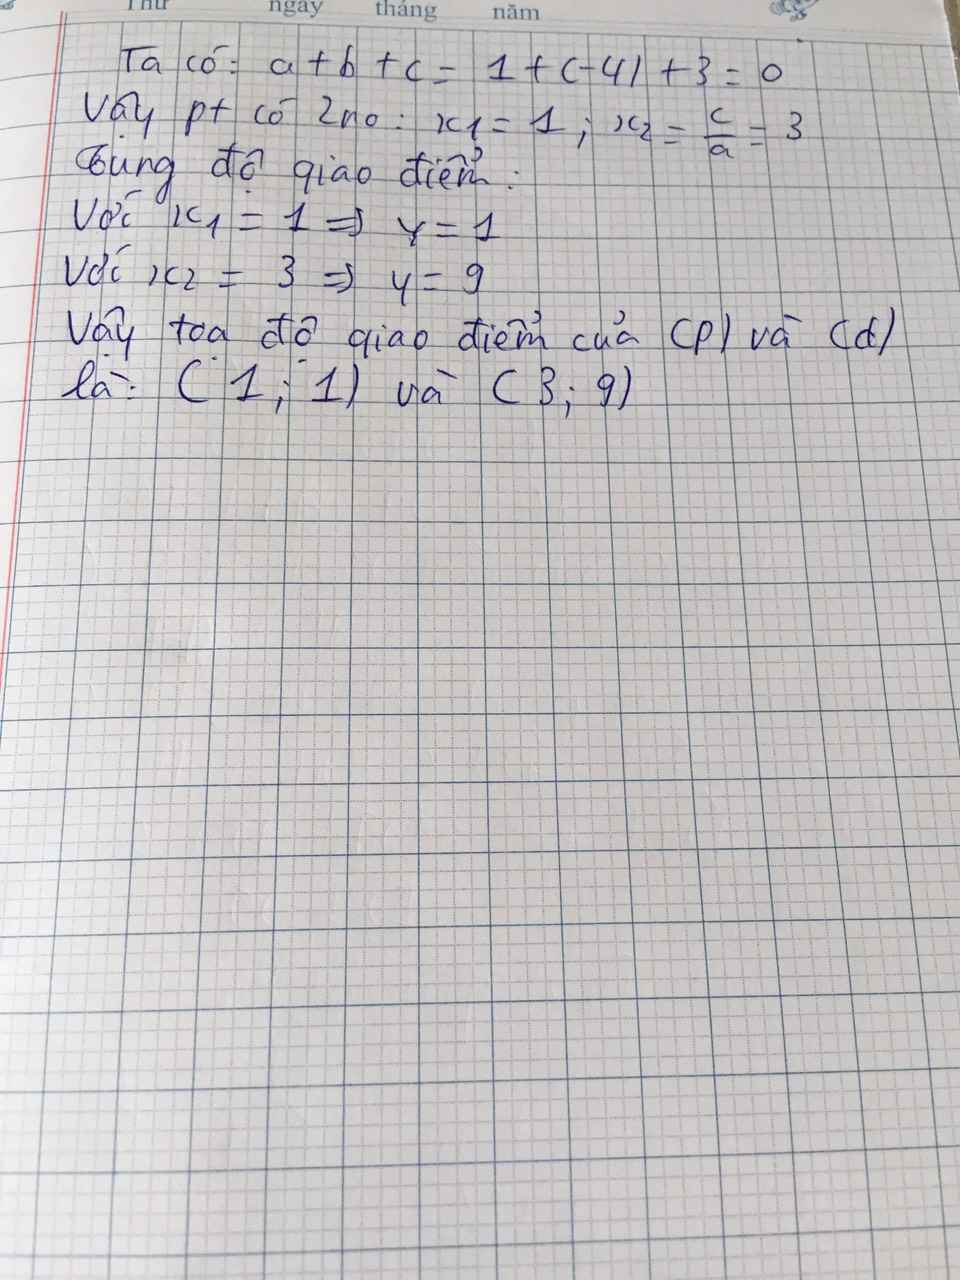 Thứ ngày tháng năm
Ta có: a + b + c = 1 + (-4) + 3 = 0
Vậy pt có 2 no: x1 = 1 ; x2 = c/a = 3
Tung độ giao điểm:
Với x1 = 1 => y = 1
Với x2 = 3 => y = 9
Vậy tọa độ giao điểm của (P) và (d)
là: (1; 1) và (3; 9)